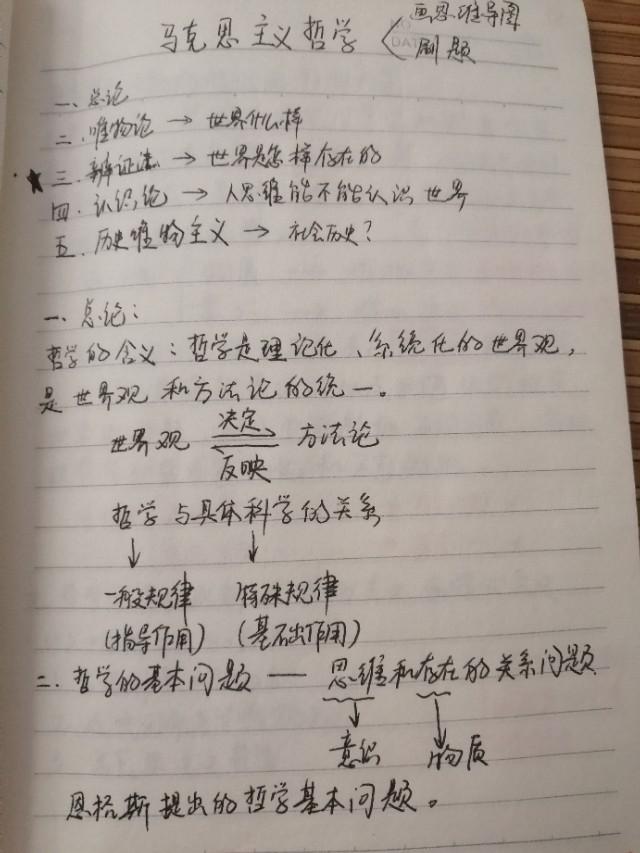 马克思主义哲学 < 画思维导图
刷题
一、总论
二、唯物论 → 世界什么样
★ 三、辩证法 → 世界是怎样存在的
四、认识论 → 人思维能不能认识世界
五、历史唯物主义 → 社会历史？
一、总论：
哲学的含义：哲学是理论化、系统化的世界观，
是世界观和方法论的统一。
世界观 决定 方法论
反映
哲学与具体科学的关系
↓ ↓
一般规律 特殊规律
(指导作用) (基础作用)
二、哲学的基本问题 —— 思维和存在的关系问题
↓ ↓
意识 物质
恩格斯提出的哲学基本问题。